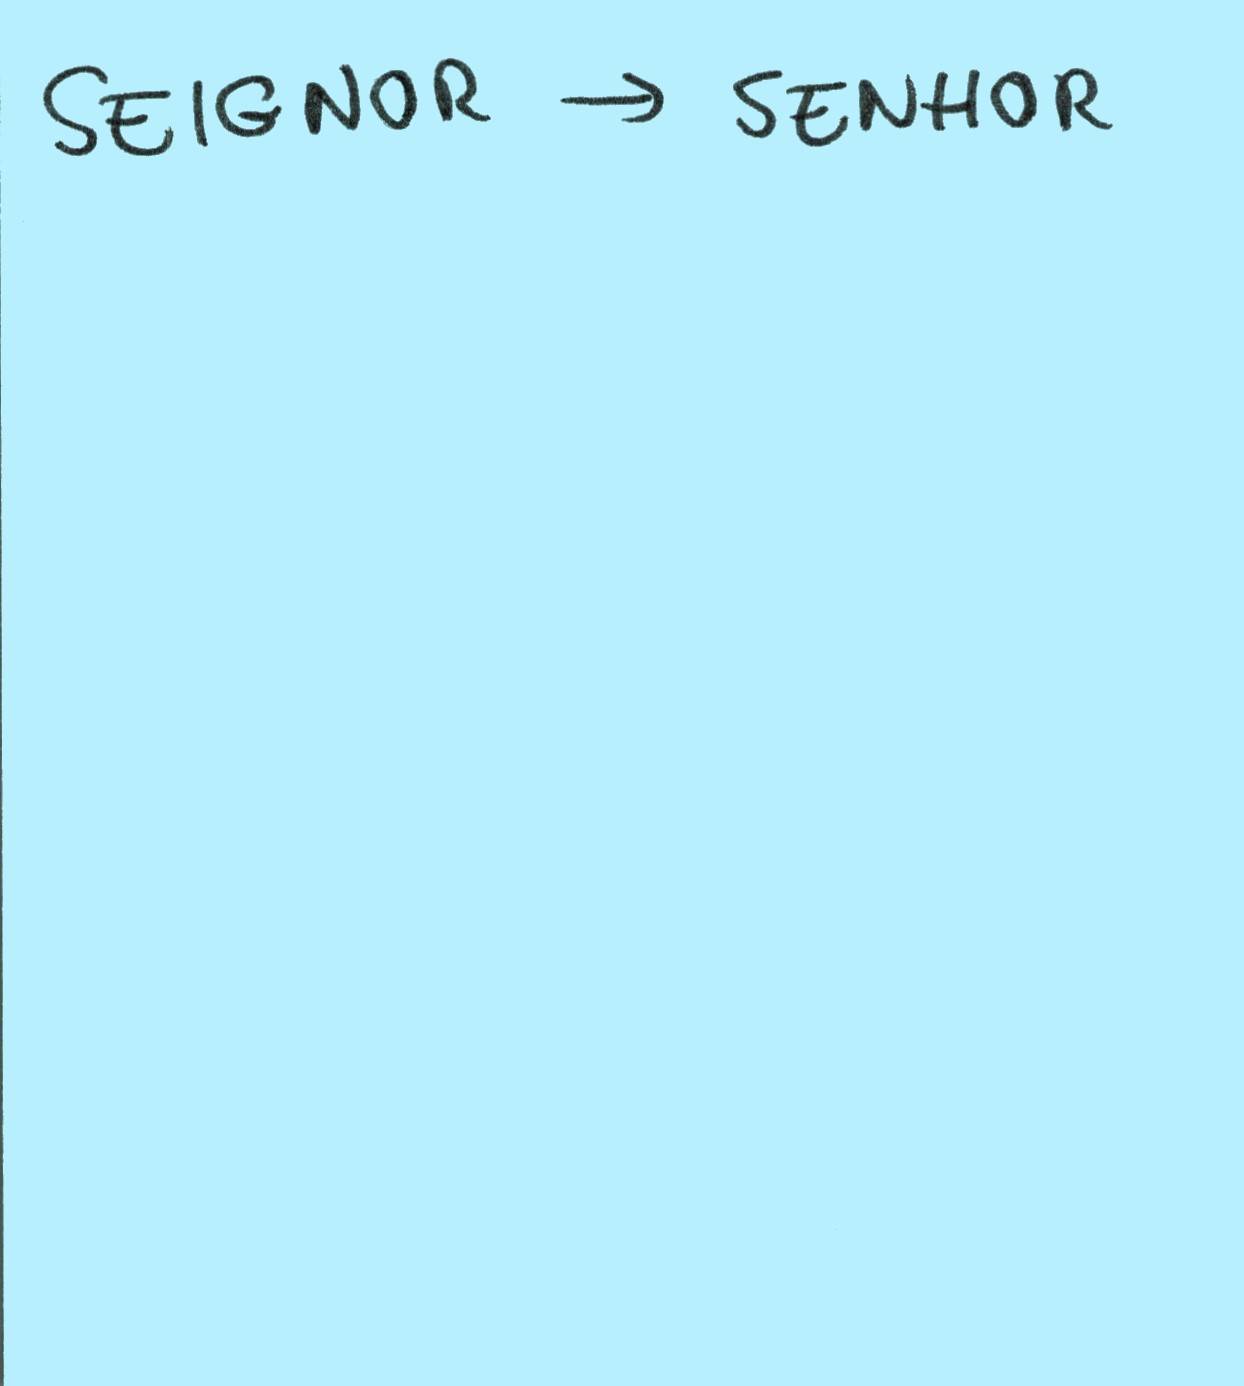 SEIGNOR → SENHOR